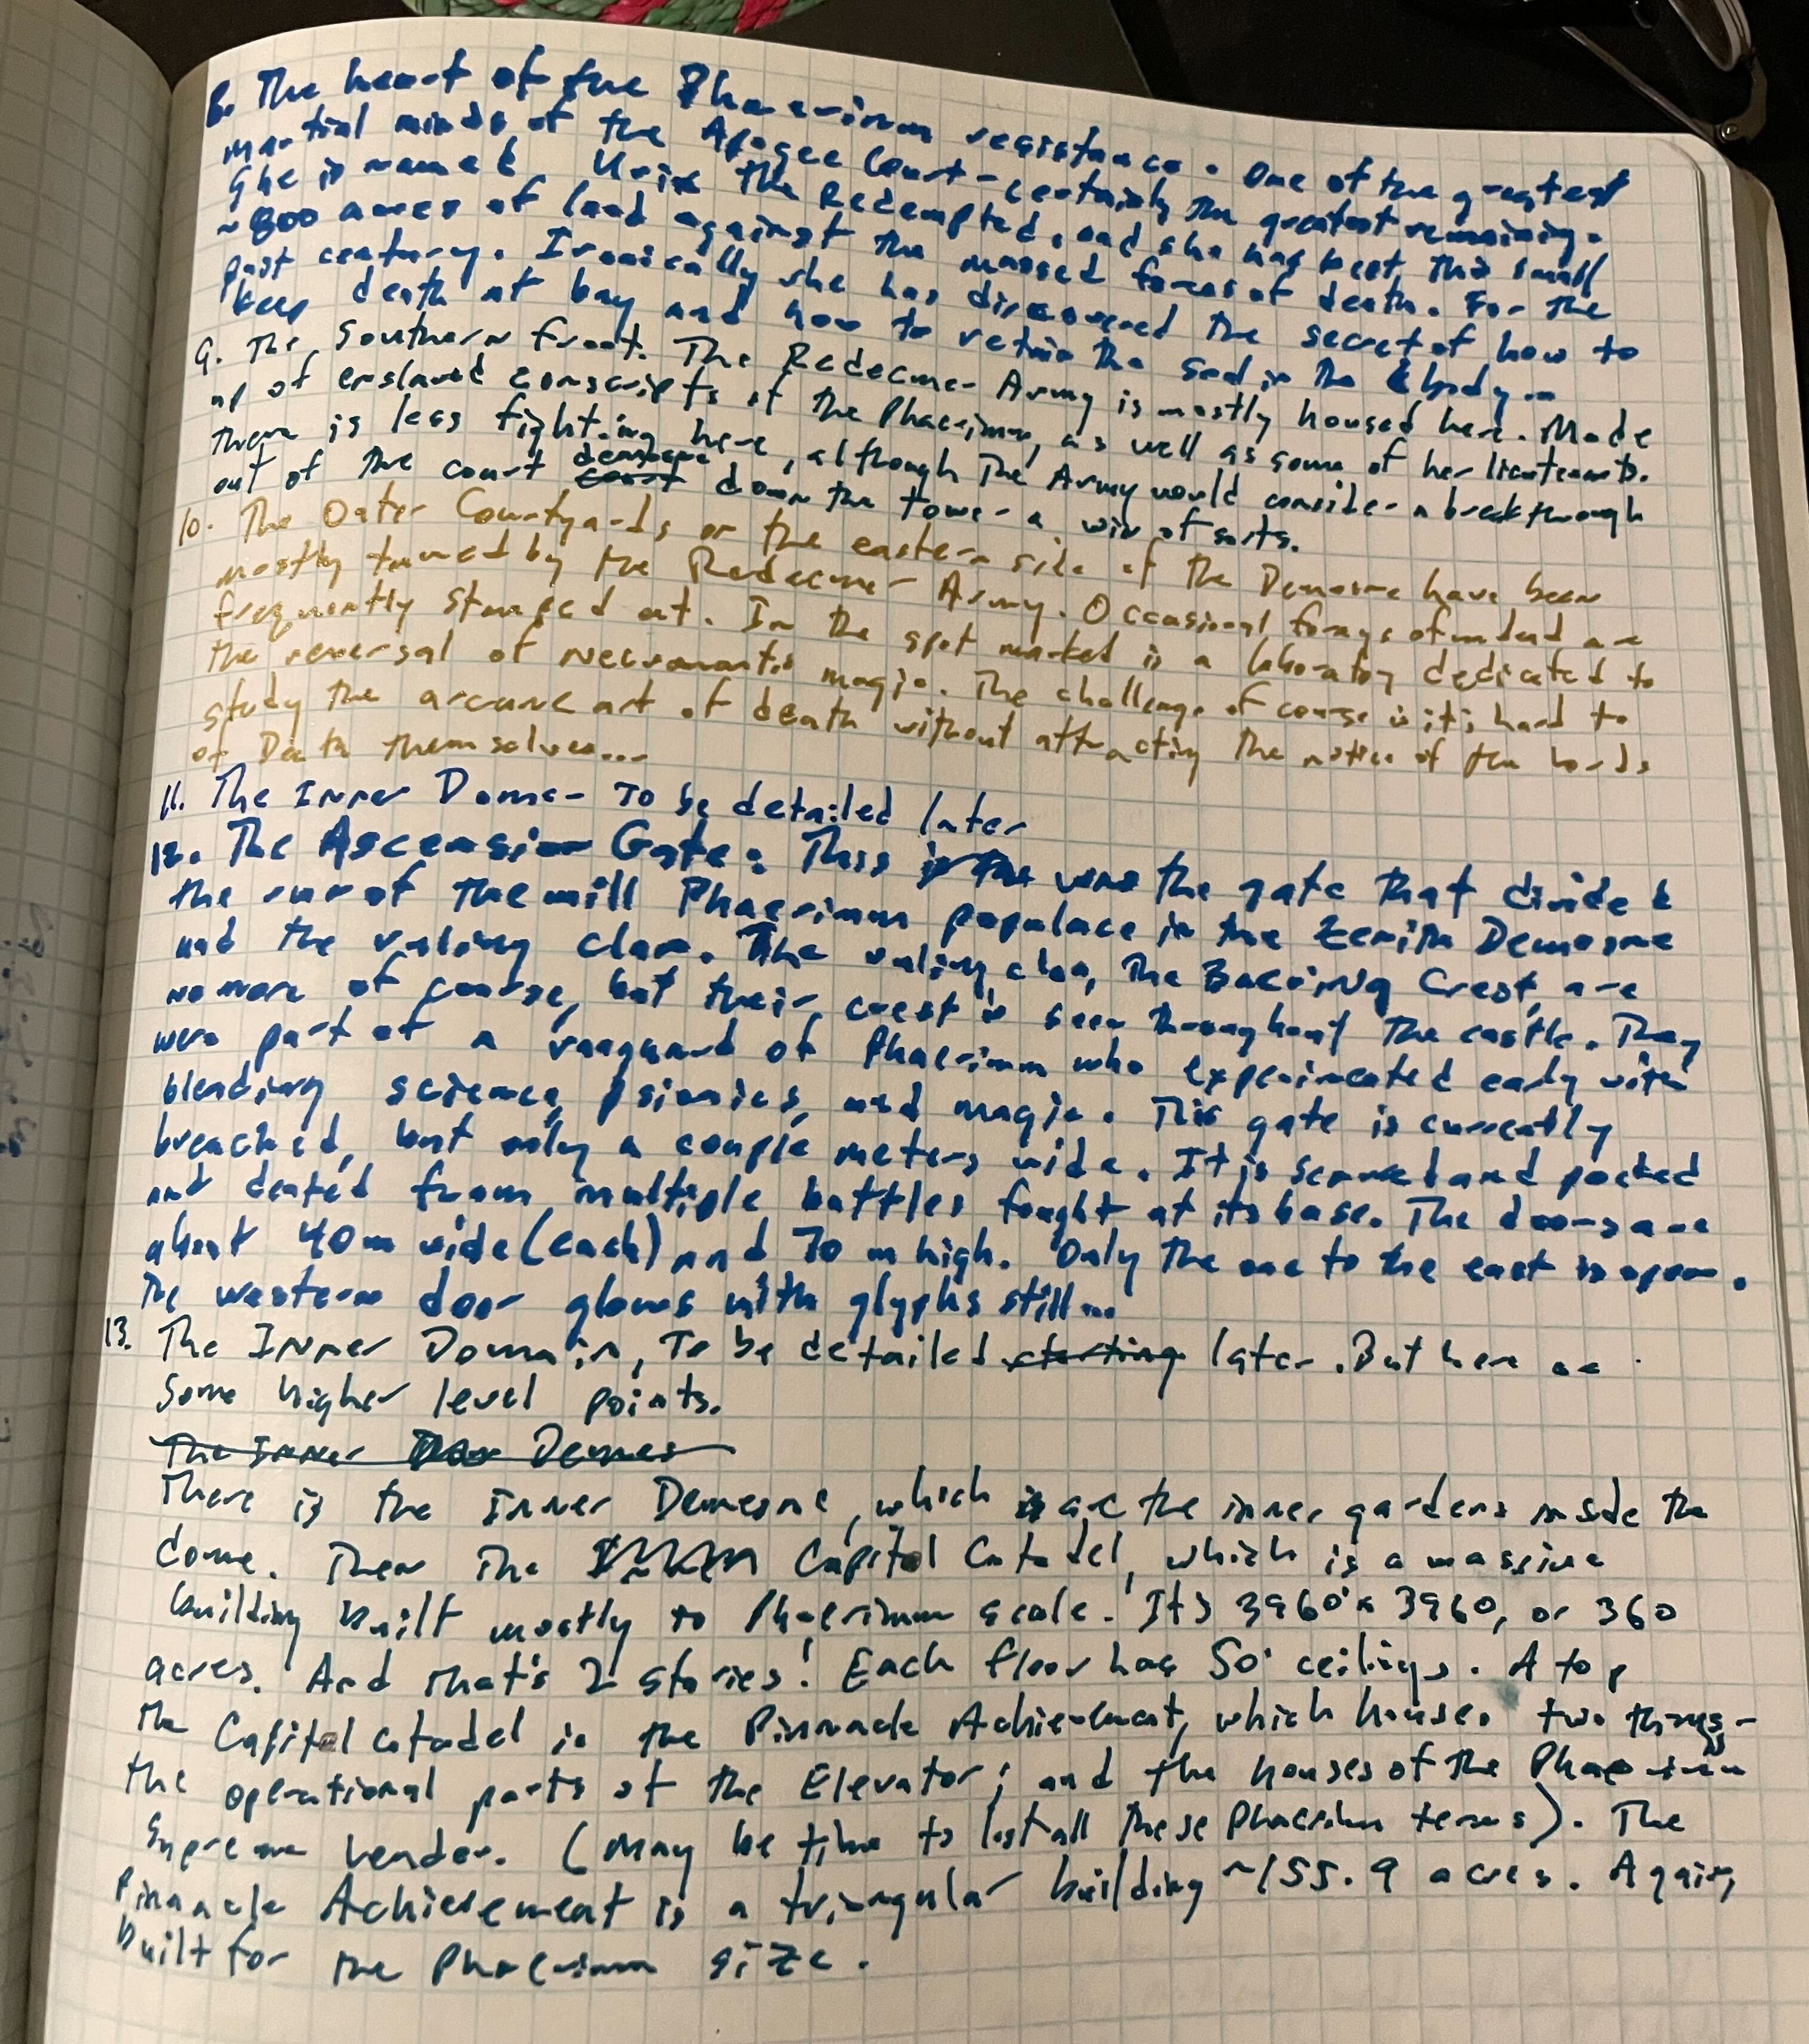 8. The heart of the Phaerimm resistance. One of the greatest
martial minds of the Apogee Court - certainly the greatest remaining.
She is named Urix the Redempted, and she has kept this small
~800 acres of land against the massed forces of death. For the
past century. Ironically she has discovered the secret of how to
keep death at bay and how to retain the soul in the body...
9. The Southern Front. The Redeemer Army is mostly housed here. Made
up of enslaved conscripts of the Phaerimm, as well as some of her lieutenants.
There is less fighting here, although the Army would consider a breakthrough
out of the court demesne down the tower a win of sorts.
10. The Outer Courtyards on the eastern side of the Demesne have been
mostly tamed by the Redeemer Army. Occasional forays of undead are
frequently stamped out. In the spot marked is a laboratory dedicated to
the reversal of necromantic magic. The challenge of course is its hard to
study the arcane art of death without attracting the notice of the Lords
of Death themselves...
11. The Inner Dome - To be detailed later
12. The Ascension Gate. This was the gate that divided
the run of the mill Phaerimm populace in the Zenith Demesne
and the ruling clan. The ruling clan, the Crest, are
no more of course, but their crest is seen throughout the castle. They
were part of a vanguard of Phaerimm who experimented early with
blending science, psionics, and magic. This gate is currently
breached, but only a couple meters wide. It is scarred and pocked
and dented from multiple battles fought at its base. The doors are
about 40m wide (each) and 70 m high. Only the one to the east is open.
The western door glows with glyphs still...
13. The Inner Domain, To be detailed starting later. But here are
some higher level points.
The Inner Demes
There is the Inner Demesne, which are the inner gardens inside the
dome. Then the Capitol Citadel, which is a massive
building built mostly to Phaerimm scale. Its 3960' x 3960, or 360
acres. And that's 2 stories! Each floor has 50' ceilings. Atop
the Capitol citadel is the Pinnacle Achievement, which houses two things -
the operational parts of the Elevator; and the houses of the Phaerimm
Supreme Leader. (May be time to list all these Phaerimm terms). The
Pinnacle Achievement is a triangular building ~155.9 acres. Again,
built for the Phaerimm size.